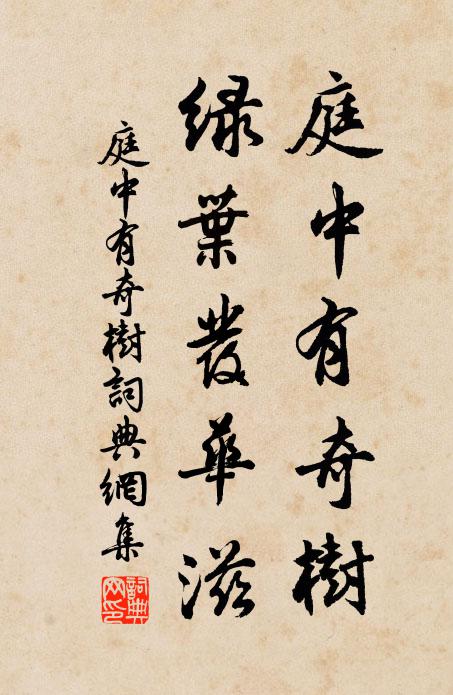 庭中有奇樹
綠葉發華滋
庭中有奇樹詞典網集
詞典
網印